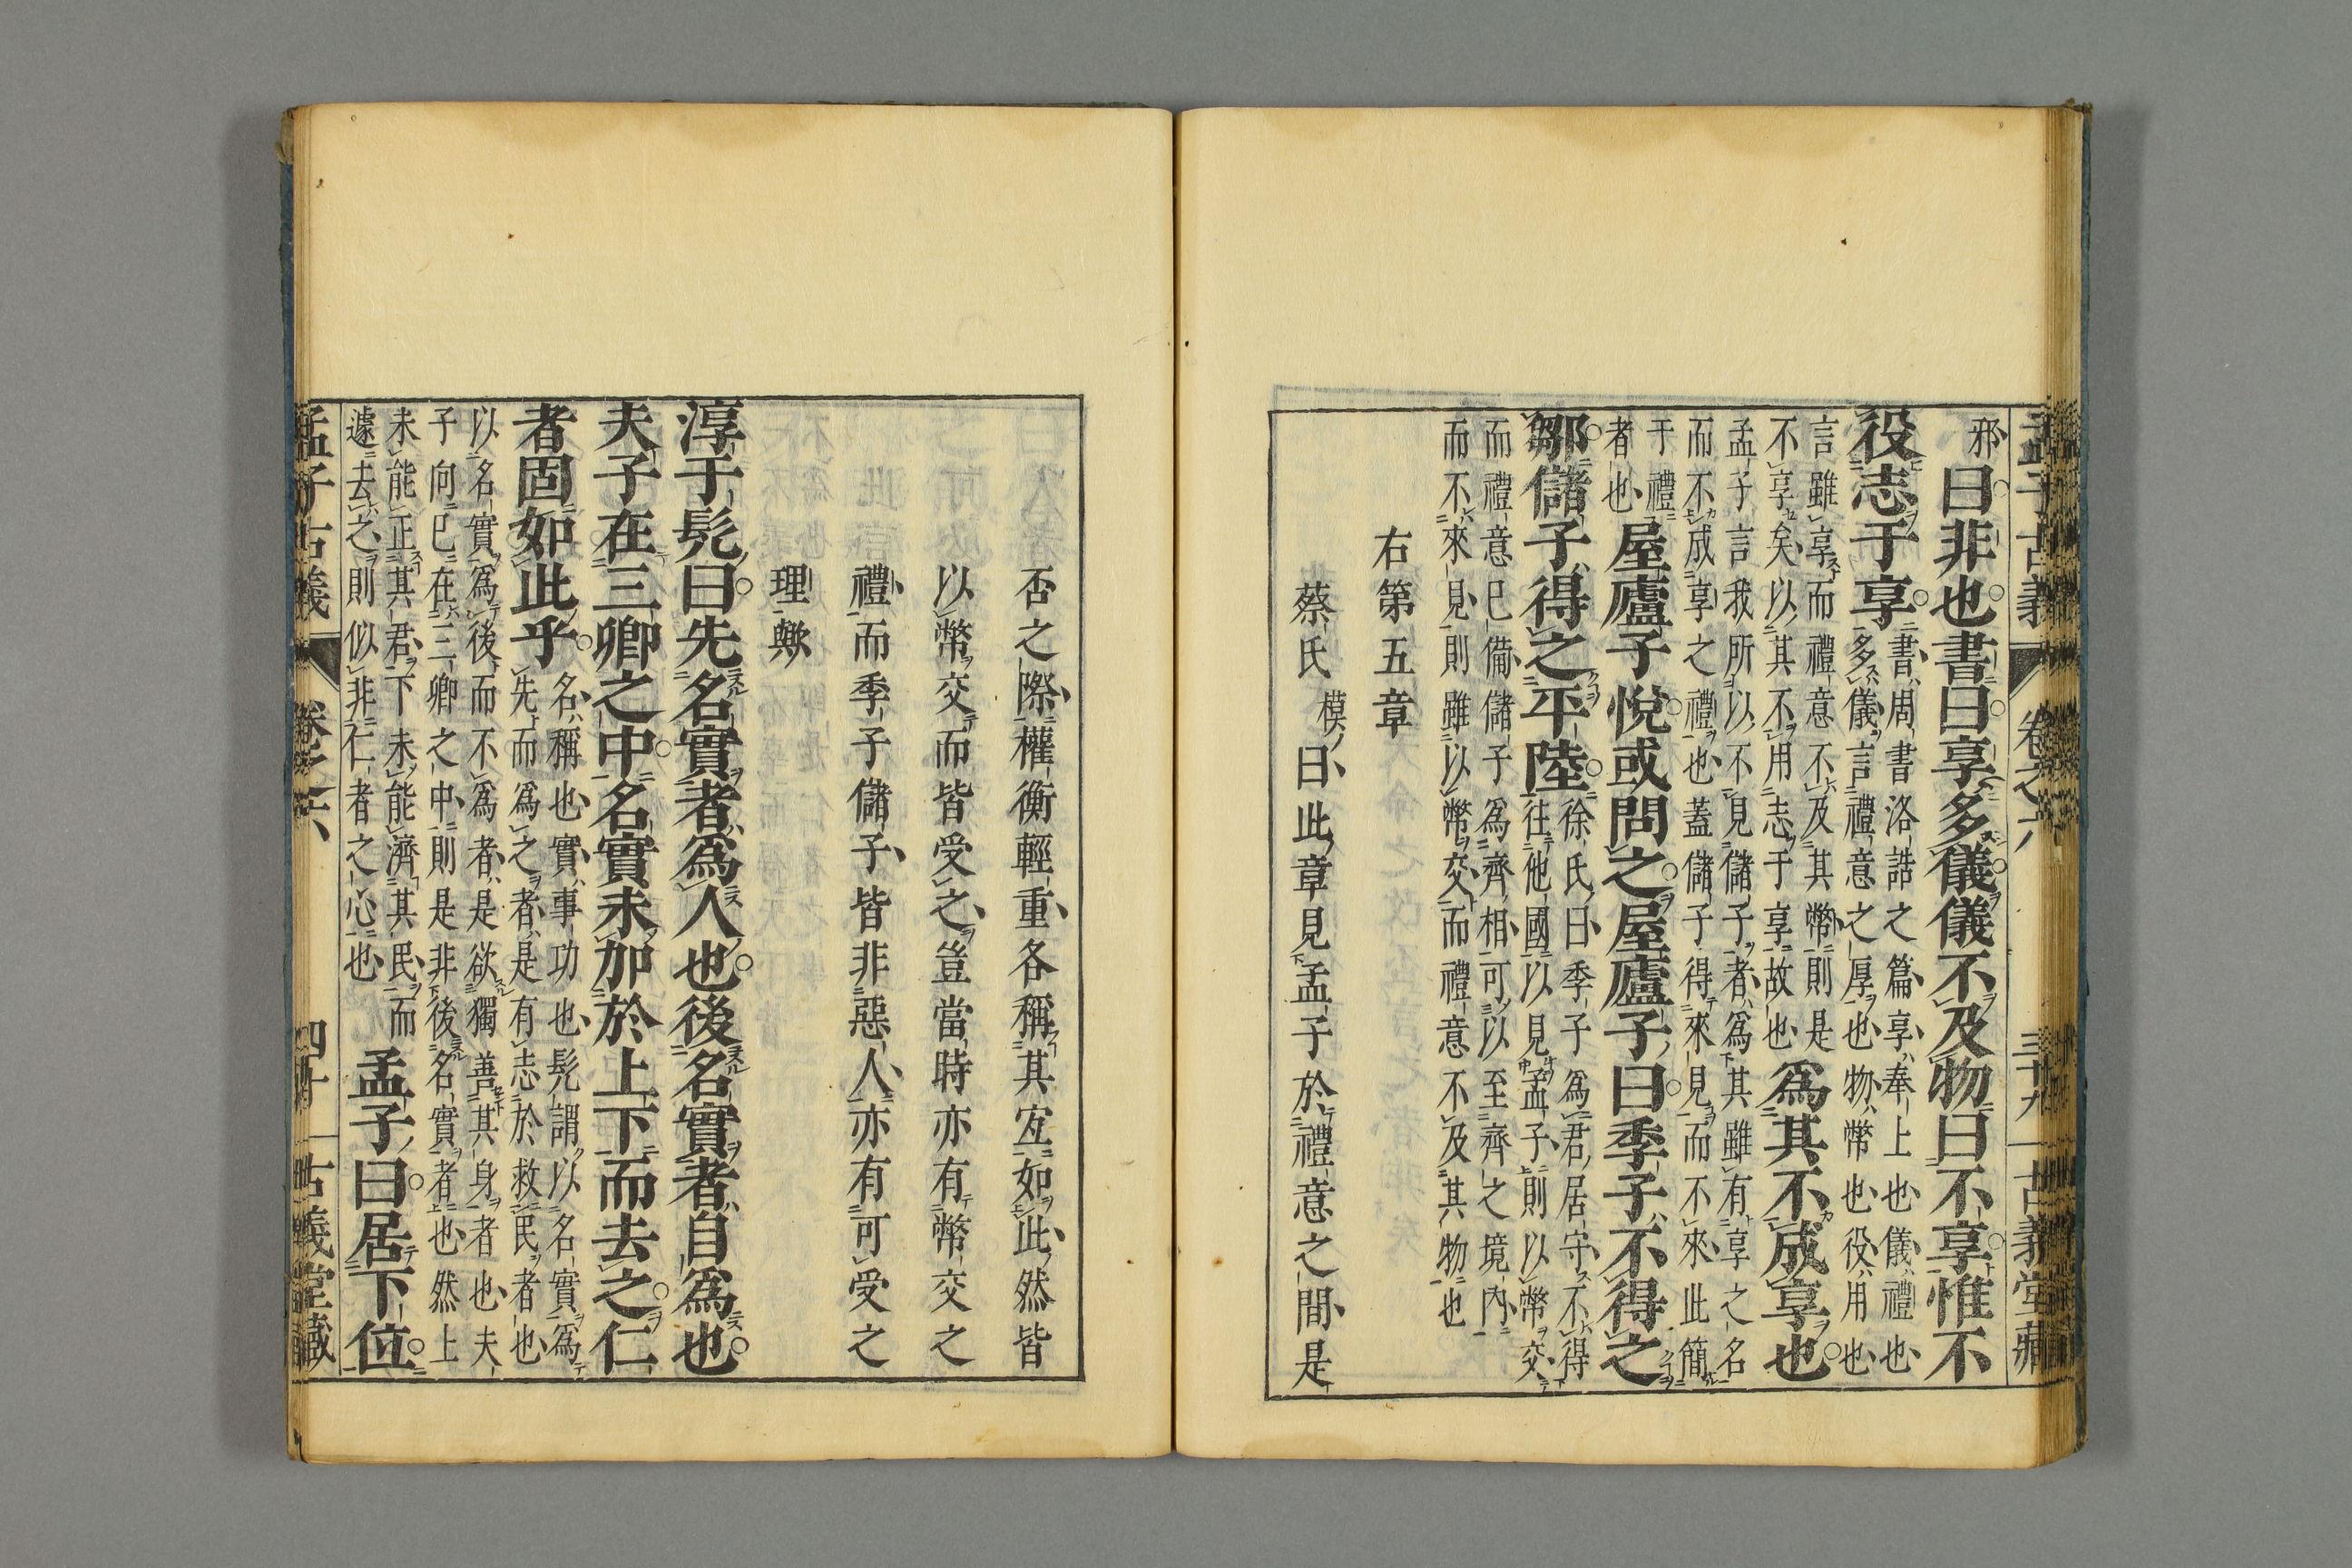 孟子古義 卷之六 三十九 古義堂藏
邪曰非也書曰享多儀儀不及物曰不享惟不
役志于享書周書洛誥之篇享奉上也儀禮也
多儀言禮意之厚也物幣也役用也
言雖享而禮意不及其幣則是
不享矣以其不用志于享故也爲其不成享也
孟子言我所以不見儲子者爲其雖有享之名
而不成享之禮也蓋儲子得來見而不來此簡
于禮
者也屋廬子悅或問之屋廬子曰季子不得之
鄒儲子得之平陸徐氏曰季子爲君居守不得
往他國以見孟子則以幣交
而禮意已備儲子爲齊相可以至齊之境內
而不來見則雖以幣交而禮意不及其物也
右第五章
蔡氏模曰此章見孟子於禮意之間是
否之際權衡輕重各稱其宐如此然皆
以幣交而皆受之豈當時亦有幣交之
禮而季子儲子皆非惡人亦有可受之
理歟
淳于髡曰先名實者爲人也後名實者自爲也
夫子在三卿之中名實未加於上下而去之仁
者固如此乎名稱也實事功也髡謂以名實爲
先而爲之者是有志於救民者也
以名實爲後而不爲者是欲獨善其身者也夫
子向已在三卿之中則是非後名實者也然上
未能正其君下未能濟其民而
遽去之則似非仁者之心也孟子曰居下位
孟子古義 卷之六 四十 古義堂藏